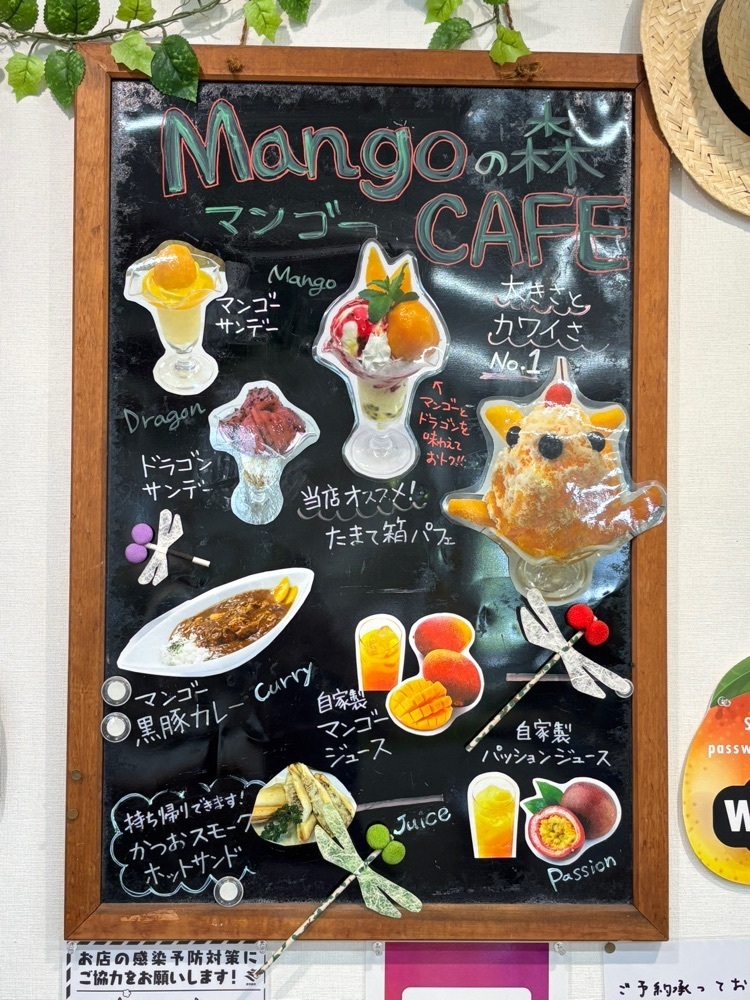 Mangoの森
マンゴー CAFE
Mango
マンゴー
サンデー
大きさと
カワイさ
No.1
↑
マンゴーと
ドラゴンを
味わえて
おトク!!
Dragon
ドラゴン
サンデー
当店オススメ!
たまて箱パフェ
マンゴー
黒豚カレー
curry
自家製
マンゴー
ジュース
自家製
パッションジュース
持ち帰りできます!
かつおスモーク
ホットサンド
Juice
Passion
お店の感染予防対策に
ご協力をお願いします!
ご予約承ってお
passw
W